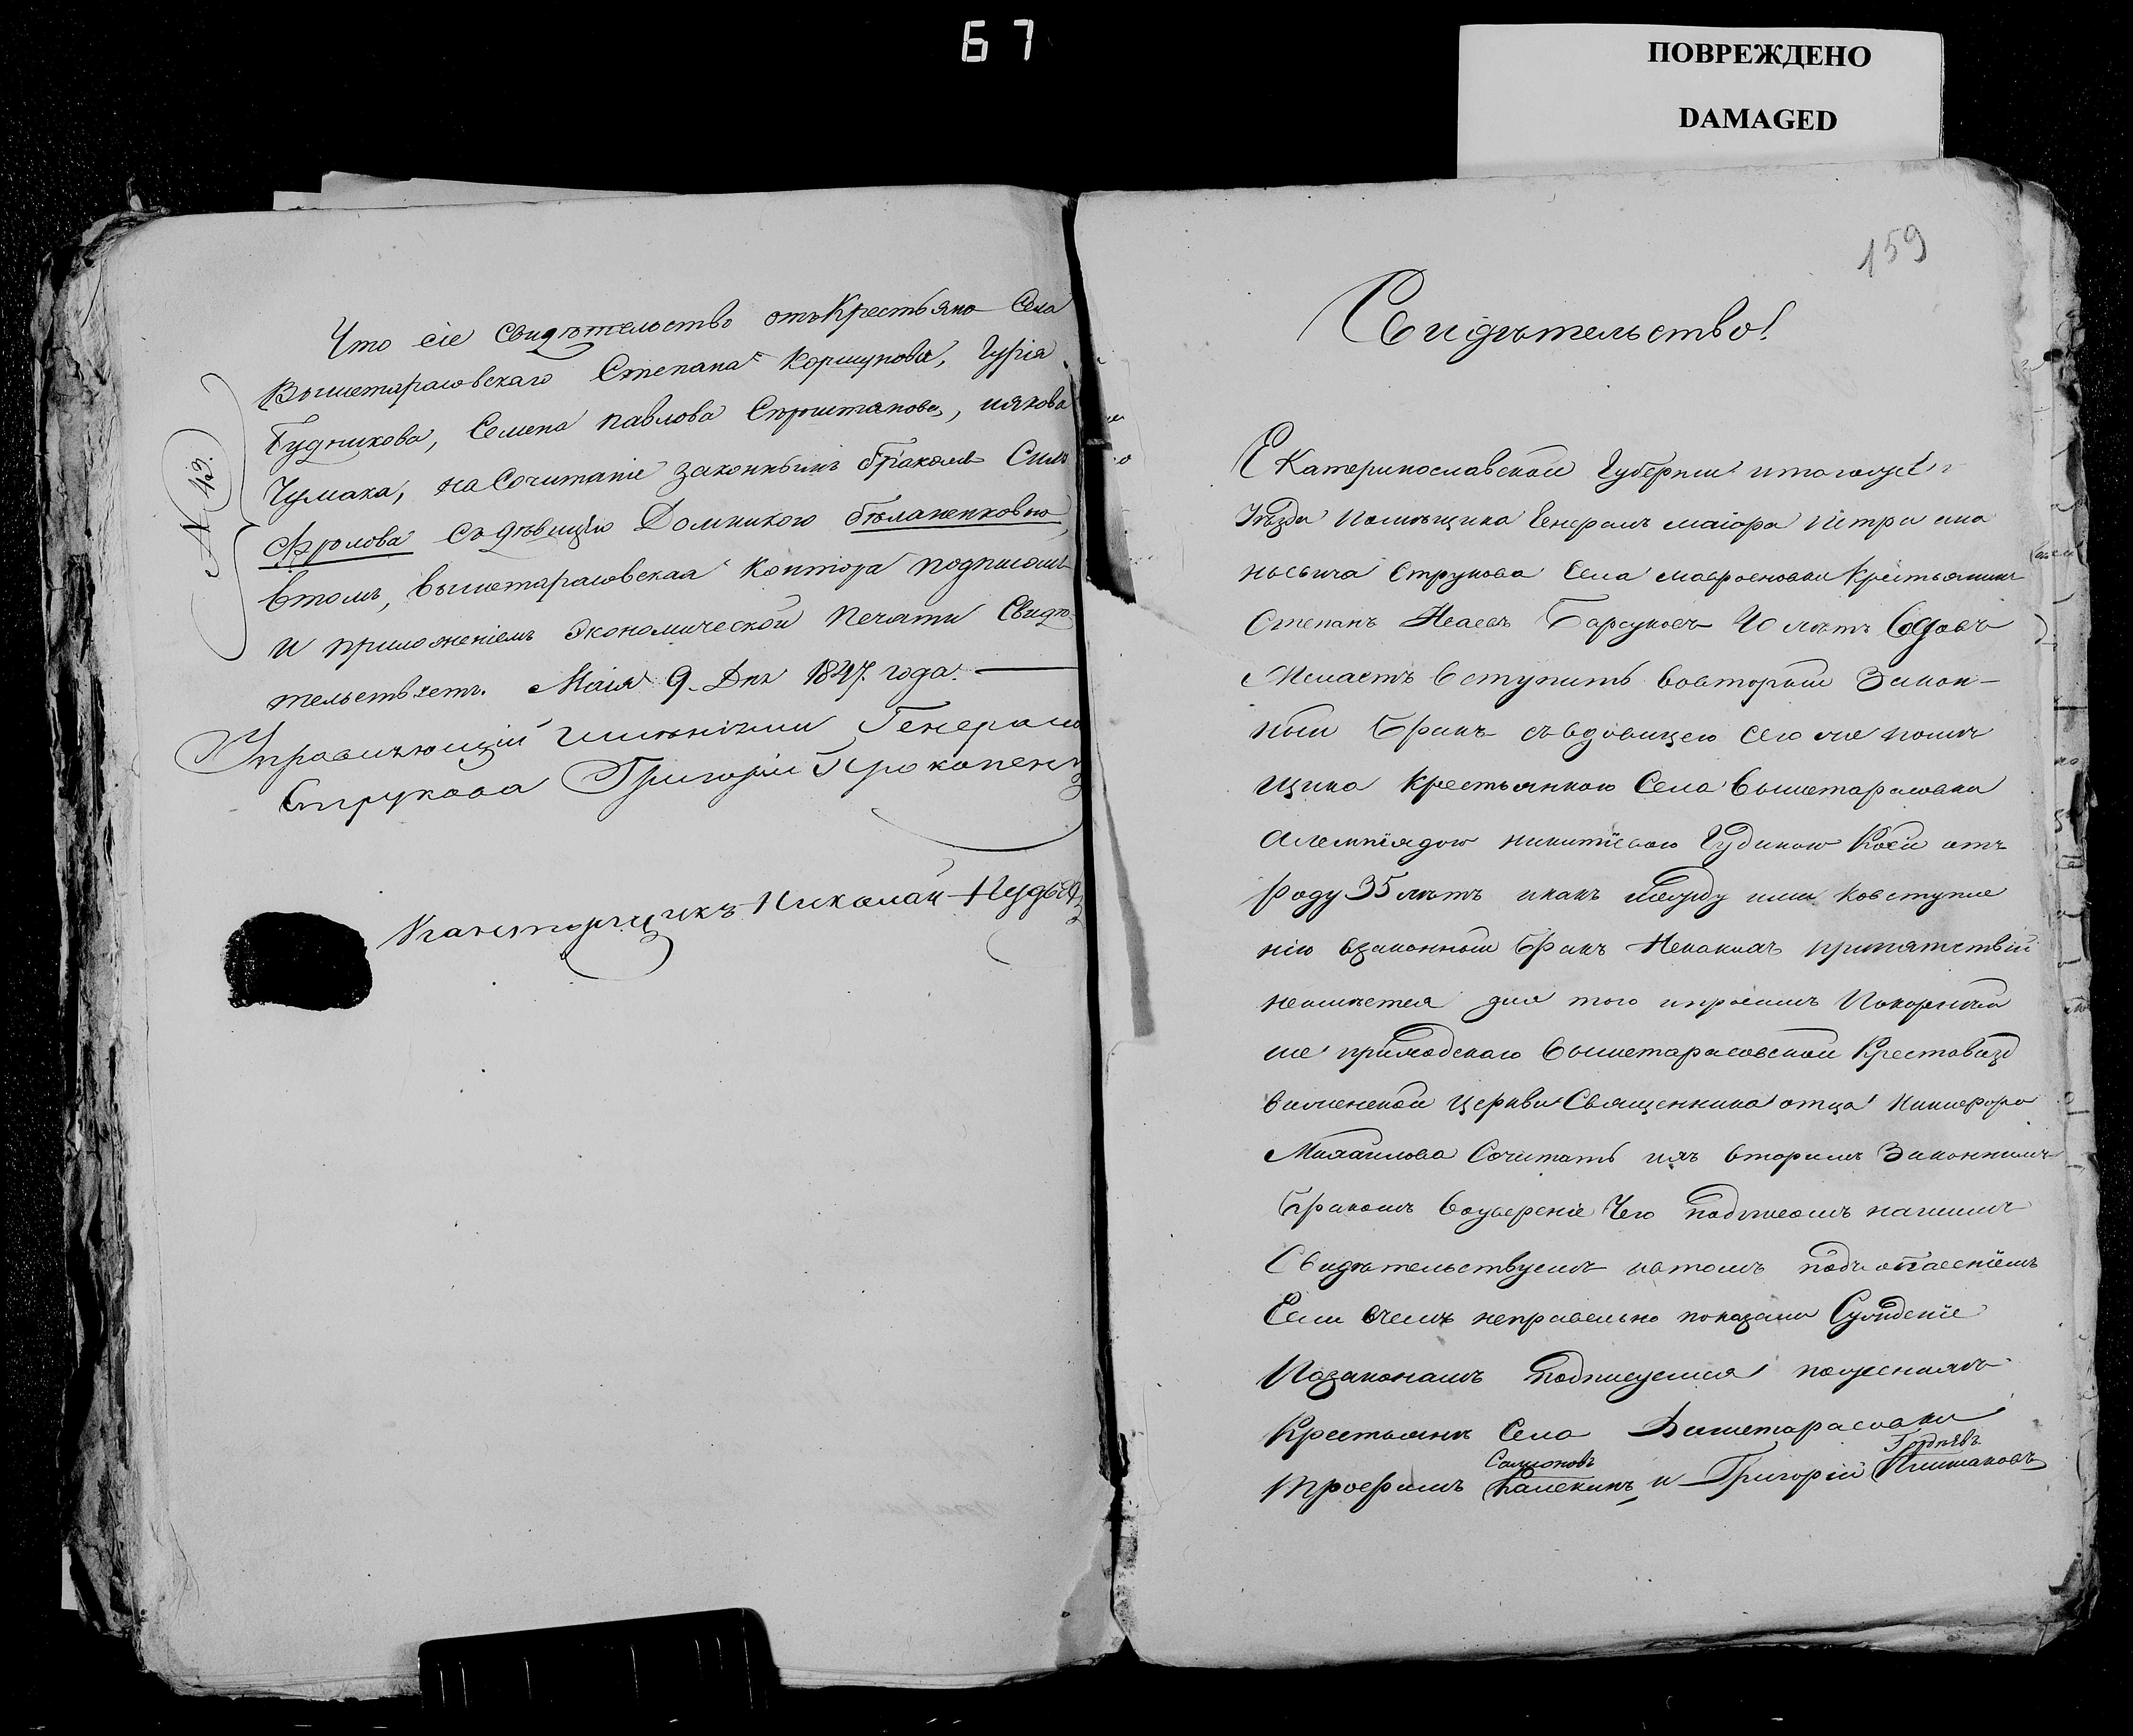 67
ПОВРЕЖДЕНО
DAMAGED
Что сіе свидѣтельство отъ Крестьянъ Села
Вышетарасовскаго Степана Коршунова, Гурія
Гудникова, Семена Павлова, иякова
Чумака, на Сочитаніе законнымъ бракомъ Силы
Фролова съ дѣвицею Домникою Бѣланенковою
N 43.
втомъ, вышетарасовская Контора подписомъ
и приложеніемъ экономической печати Свидѣ-
тельствуетъ. Маія 9. Дня 1847. года.
Управляющій имѣніями Генерала
Струкова Григорій Прокопен
Канторщикъ Николай
159
Свидѣтельство!
Екатеринославской Губерніи итогоже
Уѣзда Помѣщика Генералъ маіора Петра ана
ньевича Струкова Села мавроеновки Крестьянинъ
Степанъ Исаевъ Барсуковъ 40 лѣтъ вдовъ
Желаетъ вступить вовторый Закон-
ный Бракъ съ вдовицею сего же помѣ
щика Крестьянкою Села вышетарасовки
алемпіядою никитіевою Гудиною Коей отъ
Роду 35 лѣтъ икакъ между ими ковступле
нію взаконный Бракъ Некакихъ припятствій
неимѣется для того ипросимъ Покорнѣй
ше приходскаго вышетарасовской Крестовозд
виженской Церкви Священника отца Никифора
Михаилова Сочитать ихъ вторымъ Законнымъ
Бракомъ воуверение Чего подписомъ нашимъ
Свидѣтельствуемъ ивтомъ подъ опасеніемъ
Если вчемъ неправельно показали Сужденіе
Позаконамъ подписуемся
Крестьяне Села Вышетарасовки
Самсоновъ Гордѣевъ
трофимъ Калекинъ и Григорій Пишмаковъ